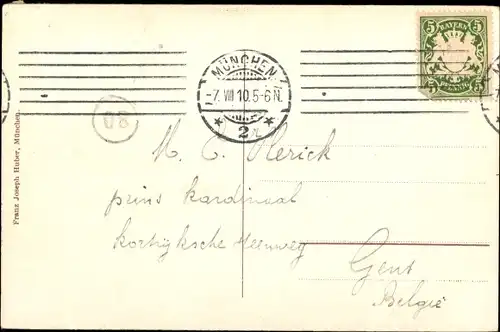 5 BAYERN 5
PFENNIG
5 5
MÜNCHEN
-7. VIII 10. 5-6 N.
* 2 *
30
Franz Joseph Huber, München.
M. C. Herick
prins kardinaal
kortrijksche steenweg
Gent
België